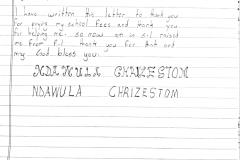 I have written this letter to thank you
for paying my school fees and thank you
for helping me. so now am in s.2 raised
me from P.1 thank you for that and
my God bless you.
NDAWULA CHRIZESTOM
NDAWULA CHRIZESTOM